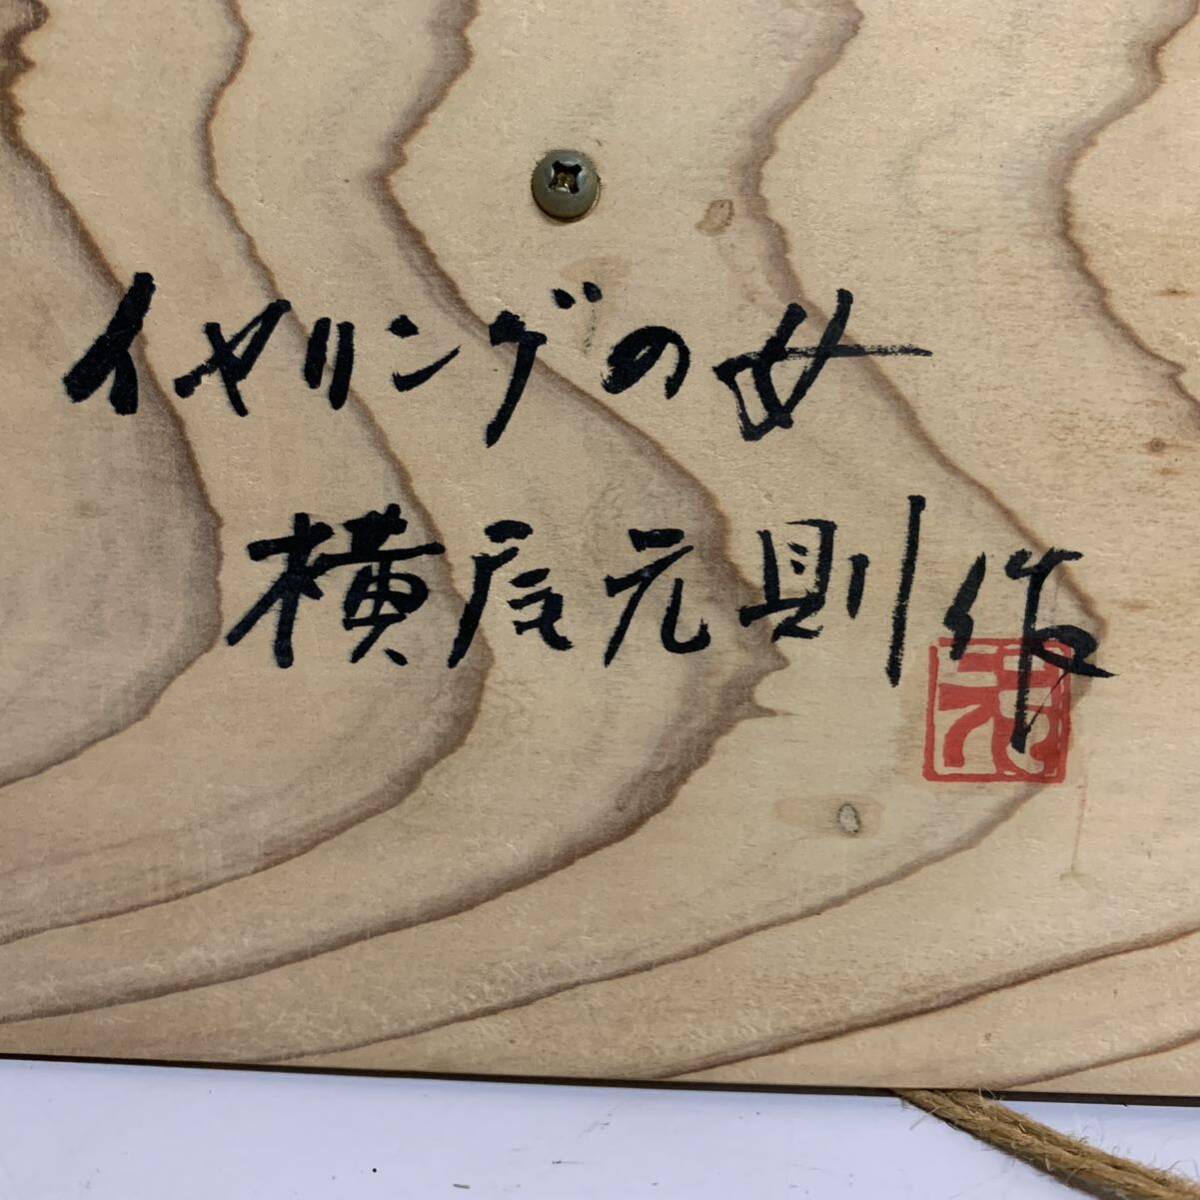 イヤリングの女
横尾元則作